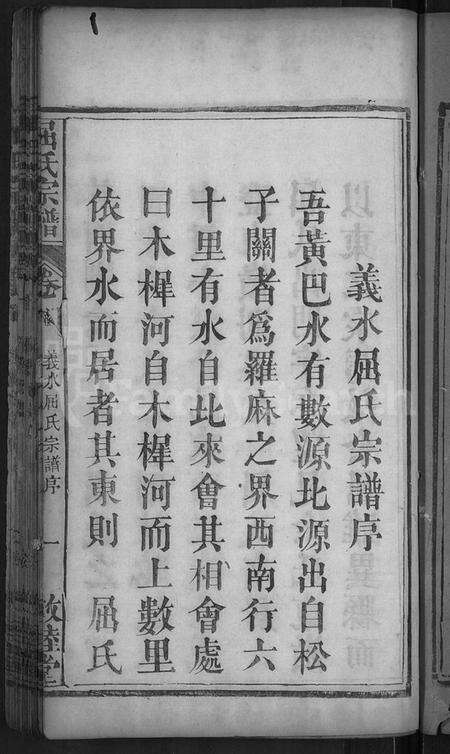 義水屈氏宗譜序
吾黃巴水有數源北源出自松
子關者為羅麻之界西南行六
十里有水自北來會其相會處
曰木樨河自木樨河而上數里
依界水而居者其東則 屈氏
屈氏宗譜
卷
義水屈氏宗譜序
一
敦睦堂